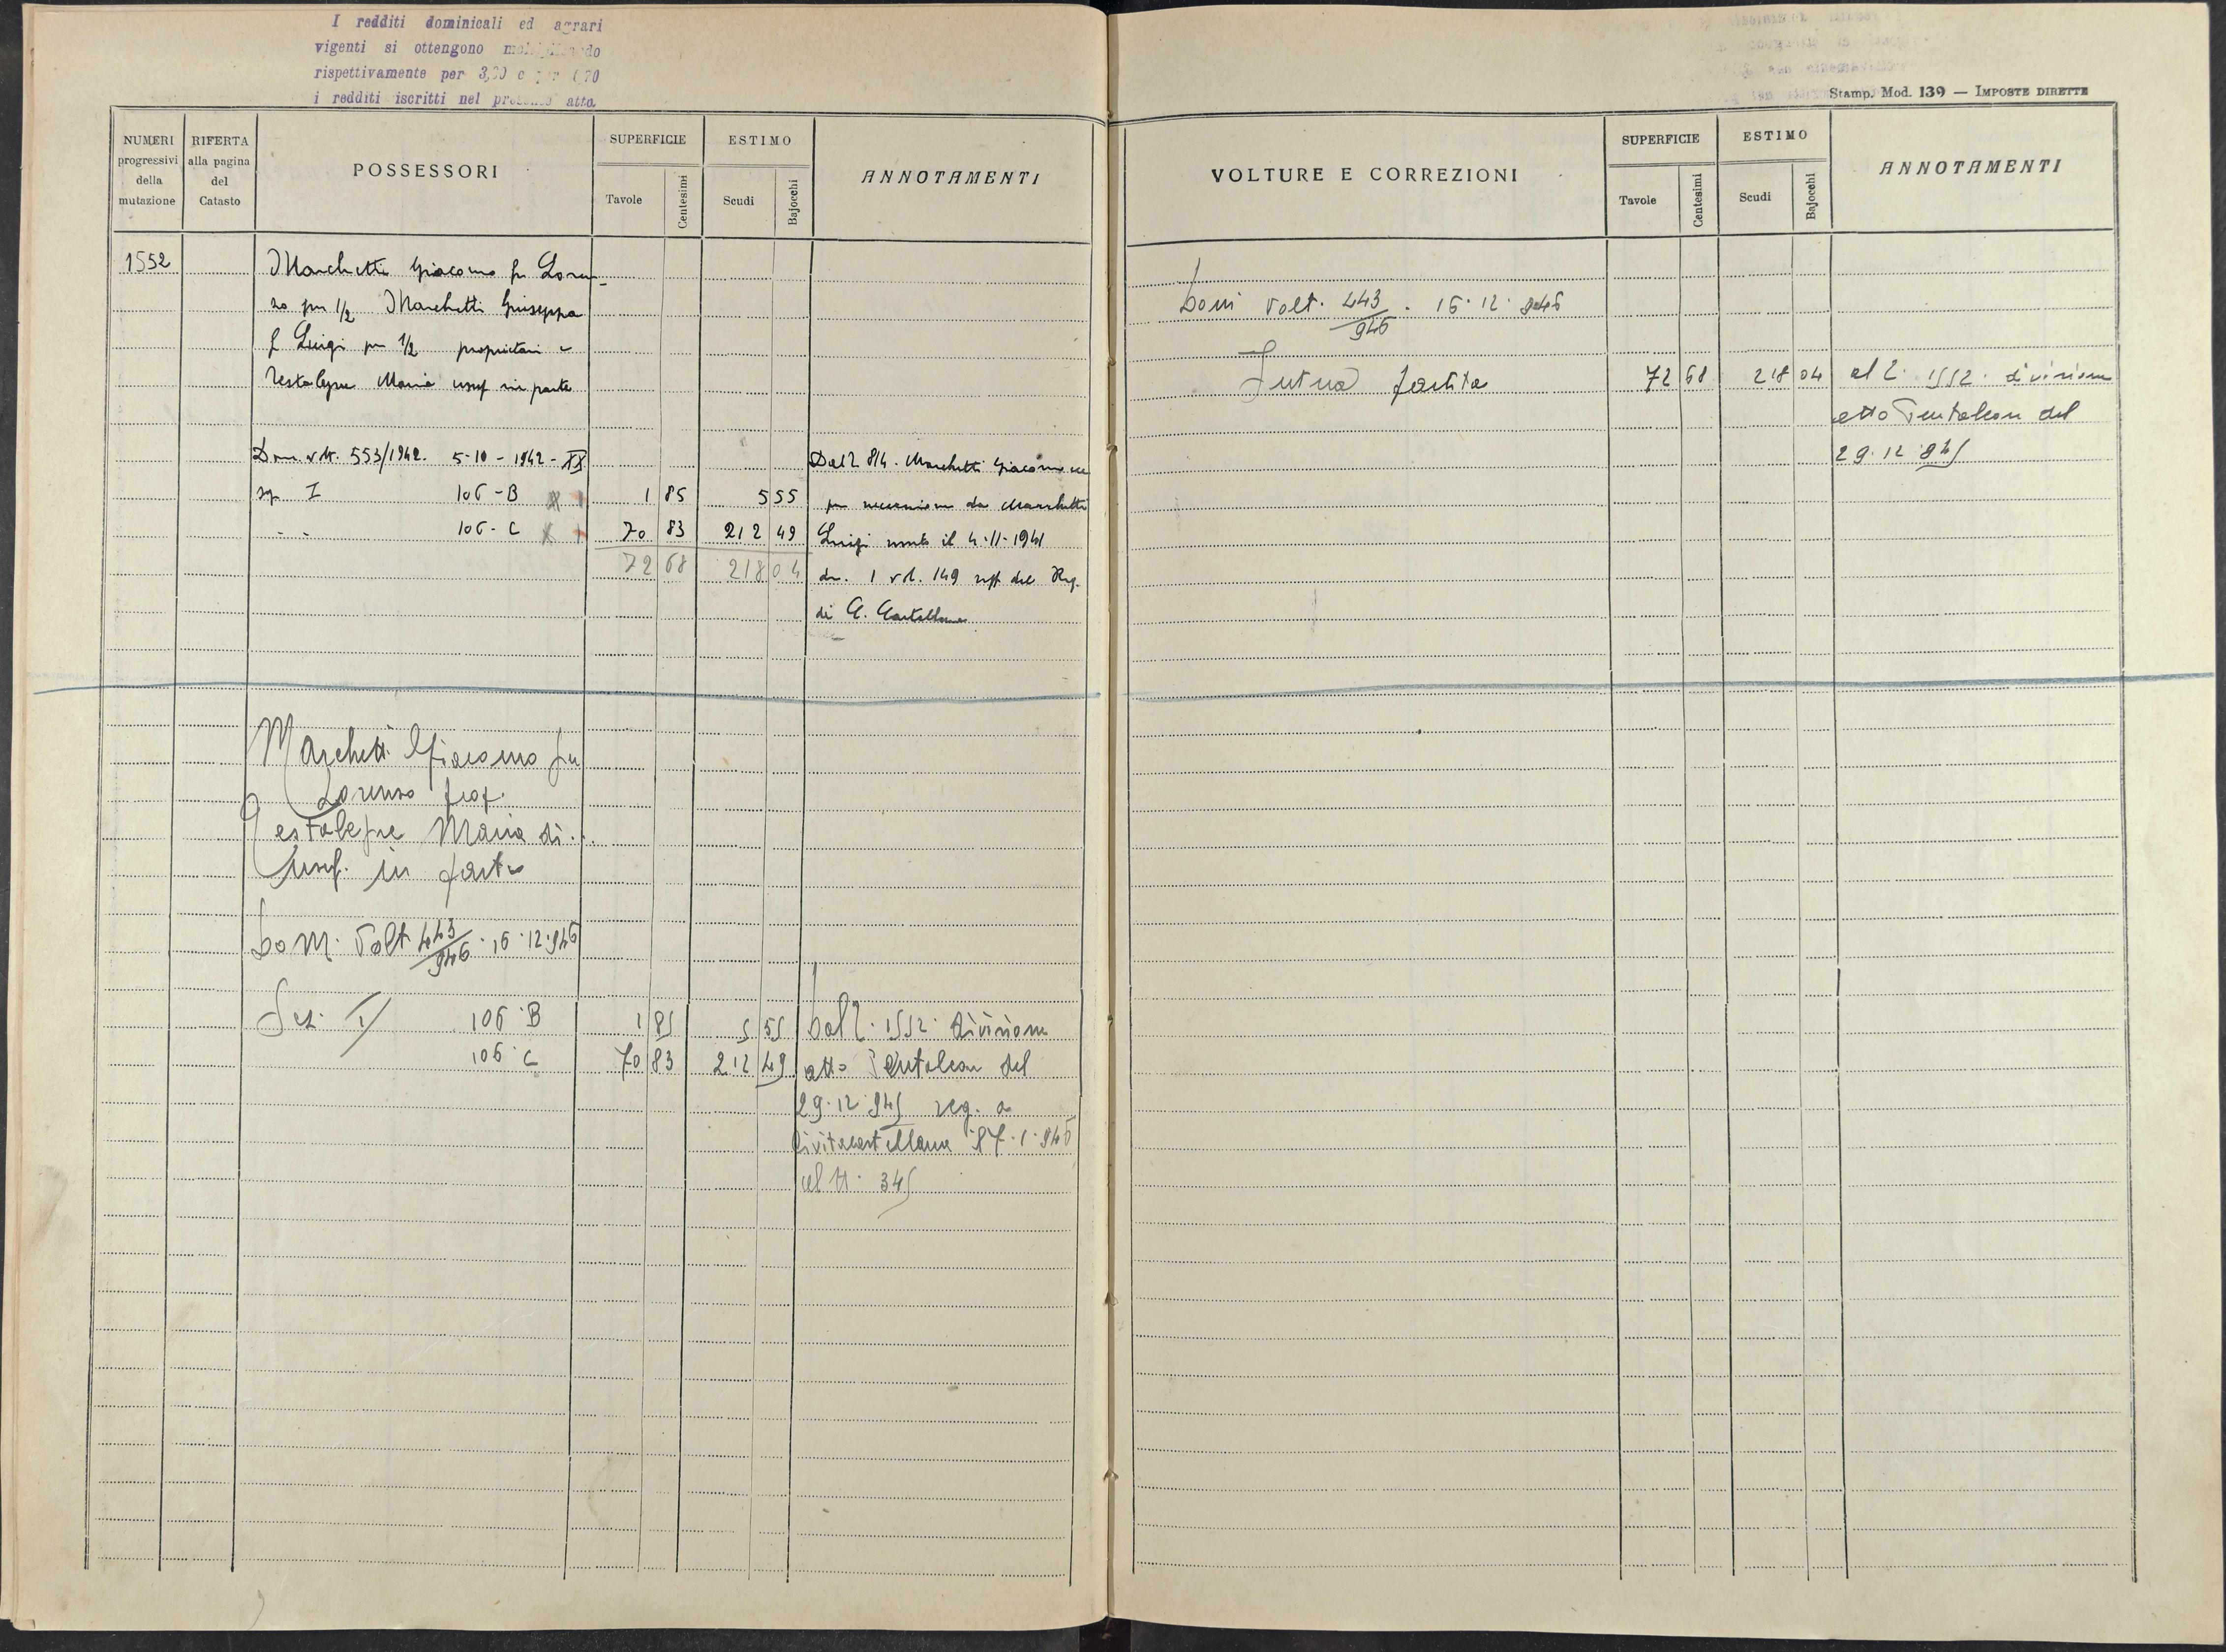 I redditi dominicali ed agrari
vigenti si ottengono
rispettivamente per
i redditi iscritti nel presente atto
NUMERI progressivi della mutazione
RIFERTA alla pagina del Catasto
POSSESSORI
SUPERFICIE
Tavole
Centesimi
ESTIMO
Scudi
Bajocchi
ANNOTAMENTI
1552
Marchetti Giacomo fu Loren-
zo per 1/2 Marchetti Giuseppa
f Luigi per 1/2 proprietari e
Testalepre Maria usuf in parte
Dom. volt. 553/1942. 5-10-1942-XX
Dal 2 814. Marchetti Giacomo
sez I 106-B 1 85 5 55
per successione da Marchetti
106-C 70 83 212 49
Luigi morto il 4-11-1941
72 68 218 04
den. 1 vol. 149 uff del Reg.
di C. Castellana
Marchetti Giacomo fu
Lorenzo prop.
Testalepre Maria di..
Usuf. in parte
Dom. Volt 443/946. 16.12.946
Sez. I 106 B 1 85 5 55
Dal 2. 1552. divisione
106 C 70 83 212 49
atto Pentaleon del
29.12.945 reg. a
Civitacastellana
al N. 345
Stamp. Mod. 139 — IMPOSTE DIRETTE
VOLTURE E CORREZIONI
SUPERFICIE
Tavole
Centesimi
ESTIMO
Scudi
Bajocchi
ANNOTAMENTI
Dom Volt. 443/946. 16.12.946
Intera partita 72 68 218 04
al 2. 1552. divisione
atto Pentaleon del
29.12.945